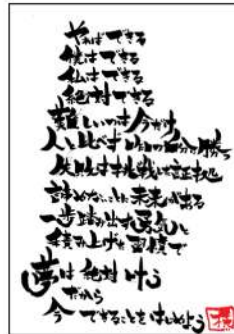 やればできる
僕はできる
私はできる
絶対できる
難しいのは今だけ
人と比べず昨日の自分に勝つ
失敗は挑戦した証拠
諦めないことに未来がある
一歩踏み出す勇気と
積み上げた習慣で
夢は絶対叶う
だから
今できることをはじめよう